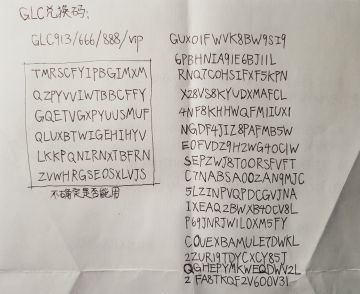 GLC兑换码:
GLC913/666/888/vip
TMRSCFYIPBGIMXM
QZPYVVIWTBBCFFY
GQETVGXPYUUSMUF
QLUXBTWIGEHIHYV
LKKPQNIRNXTBFRN
ZVWHRGSEOSXLVJS
不确定是否能用
GUXO1FWVK8BW9SI9
6PBHNIA9IE6BJ11L
RNQ7COHSIFXF5KPN
X28VS8KYUDXMAFCL
4NF8KHHWQFMIIUXI
NGDF4JIZ8PAFMB5W
EOFVDZ9H2WG4OCIW
SEPZWJ8TOORSFVFT
C7NABSAOOZAN9MJC
5LZINPVQPDCGVJNA
IXEAQ2BWXB4OCV8L
P69JNRJWILOXM5FY
COUEXBAMULE7DWKL
2ZURI9TDYCXCY85J
QGHEPYMKWEQDWV2L
2FA8TKQF2V6OOV31